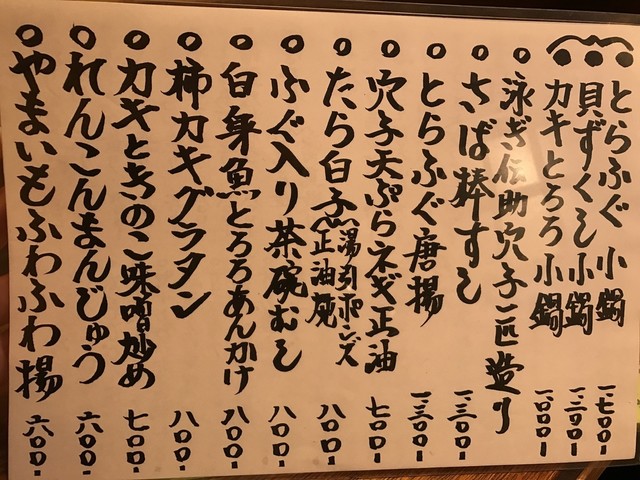 とらふぐ 小鍋 一.七〇〇-
貝ずくし小鍋 一.二〇〇-
カキとろろ小鍋 一.〇〇〇-
泳ぎ伝助穴子一匹造り
さば棒すし 一.三〇〇-
とらふぐ唐揚 一.三〇〇-
穴子天ぷらネギ正油 七〇〇-
たら白子 湯引ポンズ 正油焼 八〇〇-
ふぐ入り茶碗むし 八〇〇-
白身魚とろろあんかけ 八〇〇-
柿カキグラタン 八〇〇-
カキときのこ味噌炒め 七〇〇-
れんこんまんじゅう 六〇〇-
やまいもふわふわ揚 六〇〇-